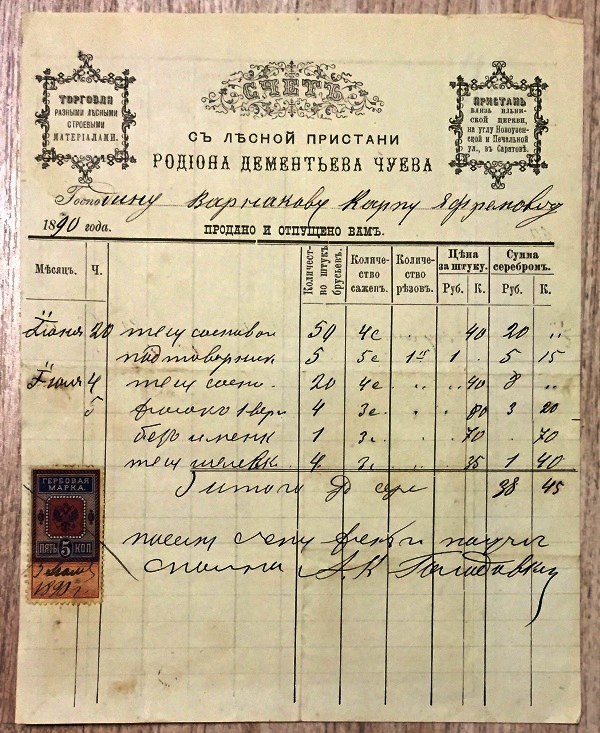 ТОРГОВЛЯ
РАЗНЫМИ ЛѢСНЫМИ
СТРОЕВЫМИ
МАТЕРІАЛАМИ.
СЧЕТЪ
ПРИСТАНЬ
БЛИЗЬ ИЛЬИН-
СКОЙ ЦЕРКВИ,
на углу Новоузен-
ской и Печальной
ул., въ Саратовѣ.
СЪ ЛѢСНОЙ ПРИСТАНИ
РОДІОНА ДЕМЕНТЬЕВА ЧУЕВА
Господину Варнакову Карпу Яфремовичу
1890 года.
ПРОДАНО И ОТПУЩЕНО ВАМЪ.
Мѣсяцъ. Ч. Количест-во штукъ брусьевъ. Количе-ство сажен. Количе-ство рѣзов. Цѣна за штуку. Руб. К. Сумма серебромъ. Руб. К.
Іюня 20 тесу сосновой 50 4с 40 20 "
подтоварник 5 5с 1 5 15
Іюля 4 тесу сосно. 20 4с 40 8 "
5 4 3с 80 3 20
1 3с 70 70
тесу шелевк 4 3с 35 1 40
итого 38 45
по сему счету получил
ГЕРБОВАЯ
МАРКА.
ПЯТЬ 5 КОП.
1890 г.